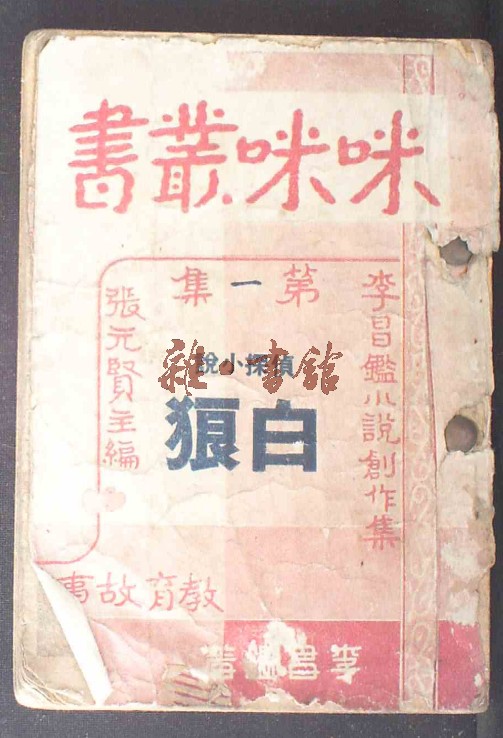 咪咪叢書
李昌鑑小說創作集
第一集
偵探小說
白狼
張元賢主編
教育故事
李昌鑑著
雜·書館